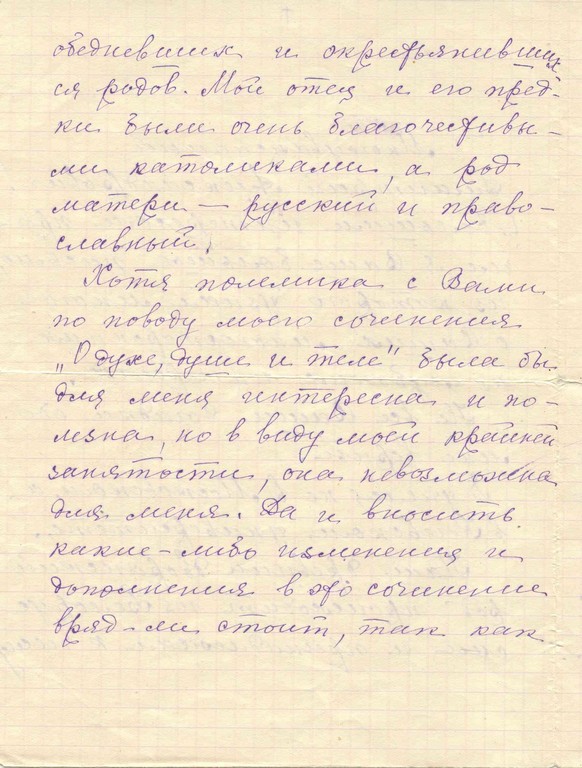 обедневших и окрестьянивших
ся родов. Мой отец и его пред-
ки были очень благочестивы-
ми католиками, а род
матери — русский и право-
славный.
Хотя полемика с Вами
по поводу моего сочинения
„О духе, душе и теле" была бы
для меня интересна и по-
лезна, но в виду моей крайней
занятости, она невозможна
для меня. Да и вносить
какие-либо изменения и
дополнения в это сочинение
вряд-ли стоит, так как